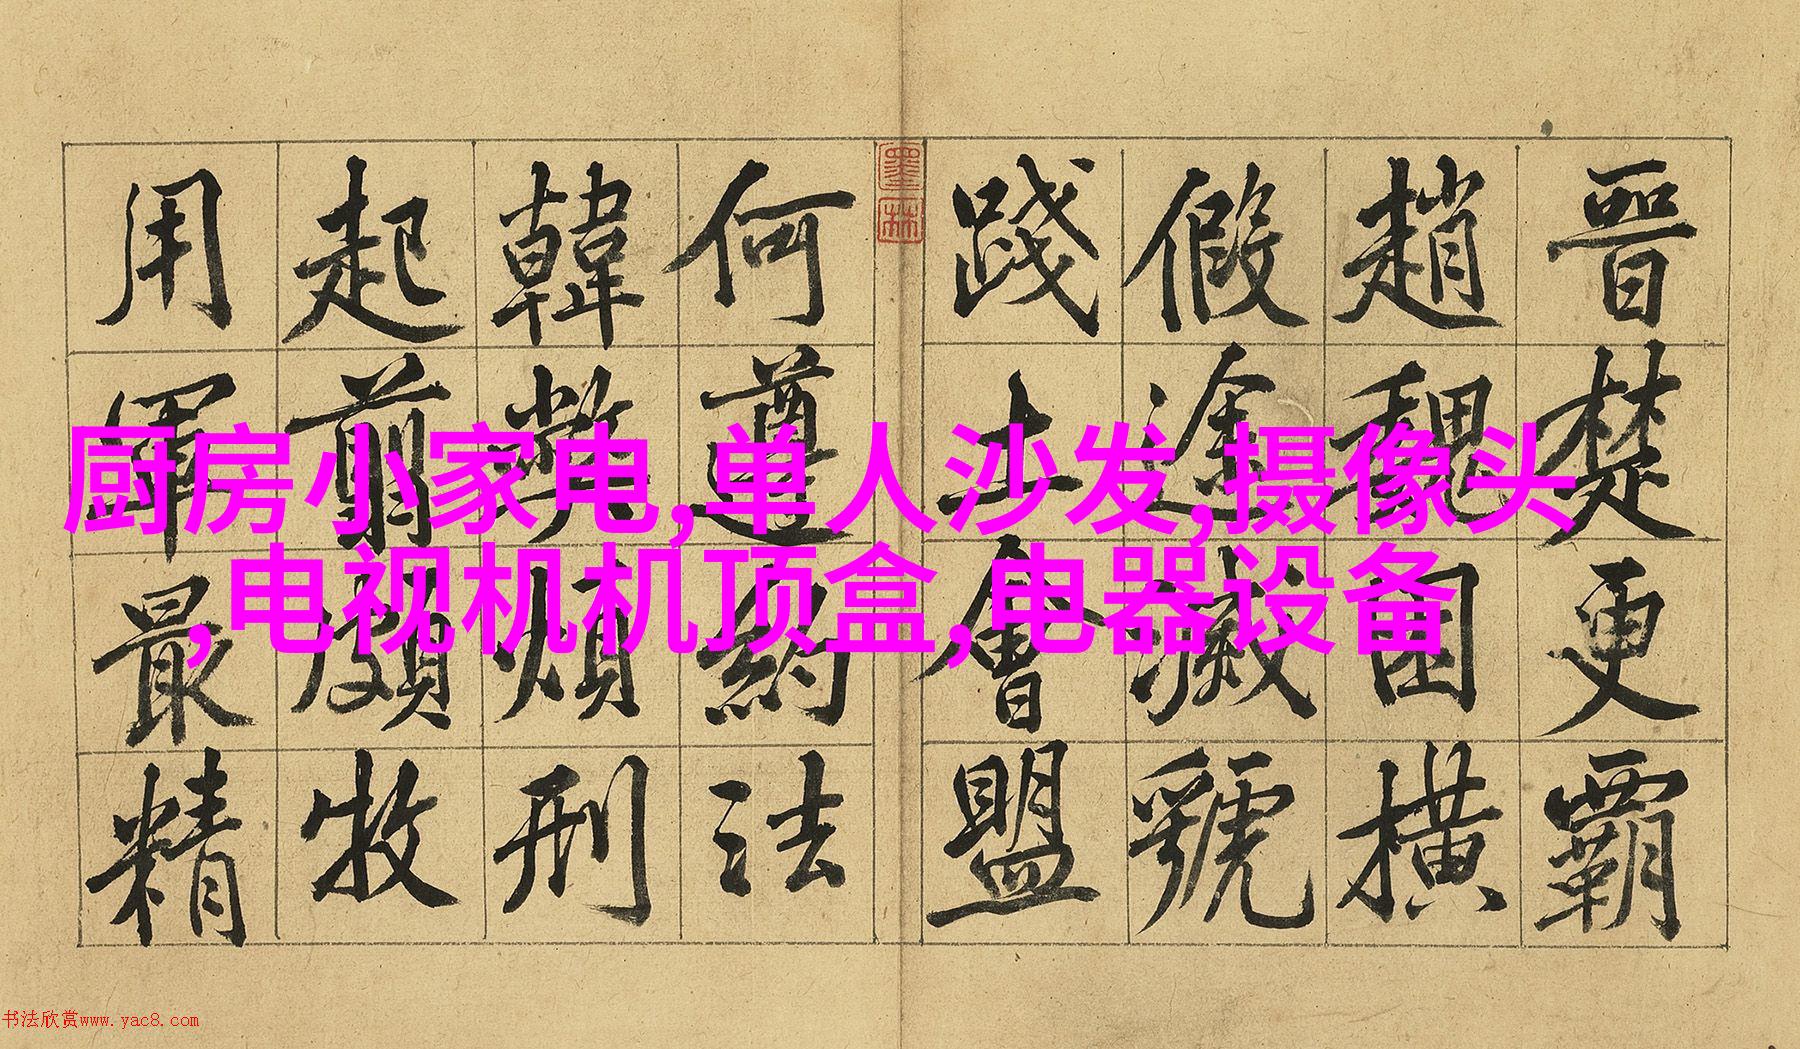 晉楚更霸
趙魏困橫
假途滅虢
踐土會盟
何遵約法
韓弊煩刑
起翦頗牧
用軍最精
墨林
厨房小家电,单人沙发,摄像头
,电视机机顶盒,电器设备
书法欣赏www.yac8.com